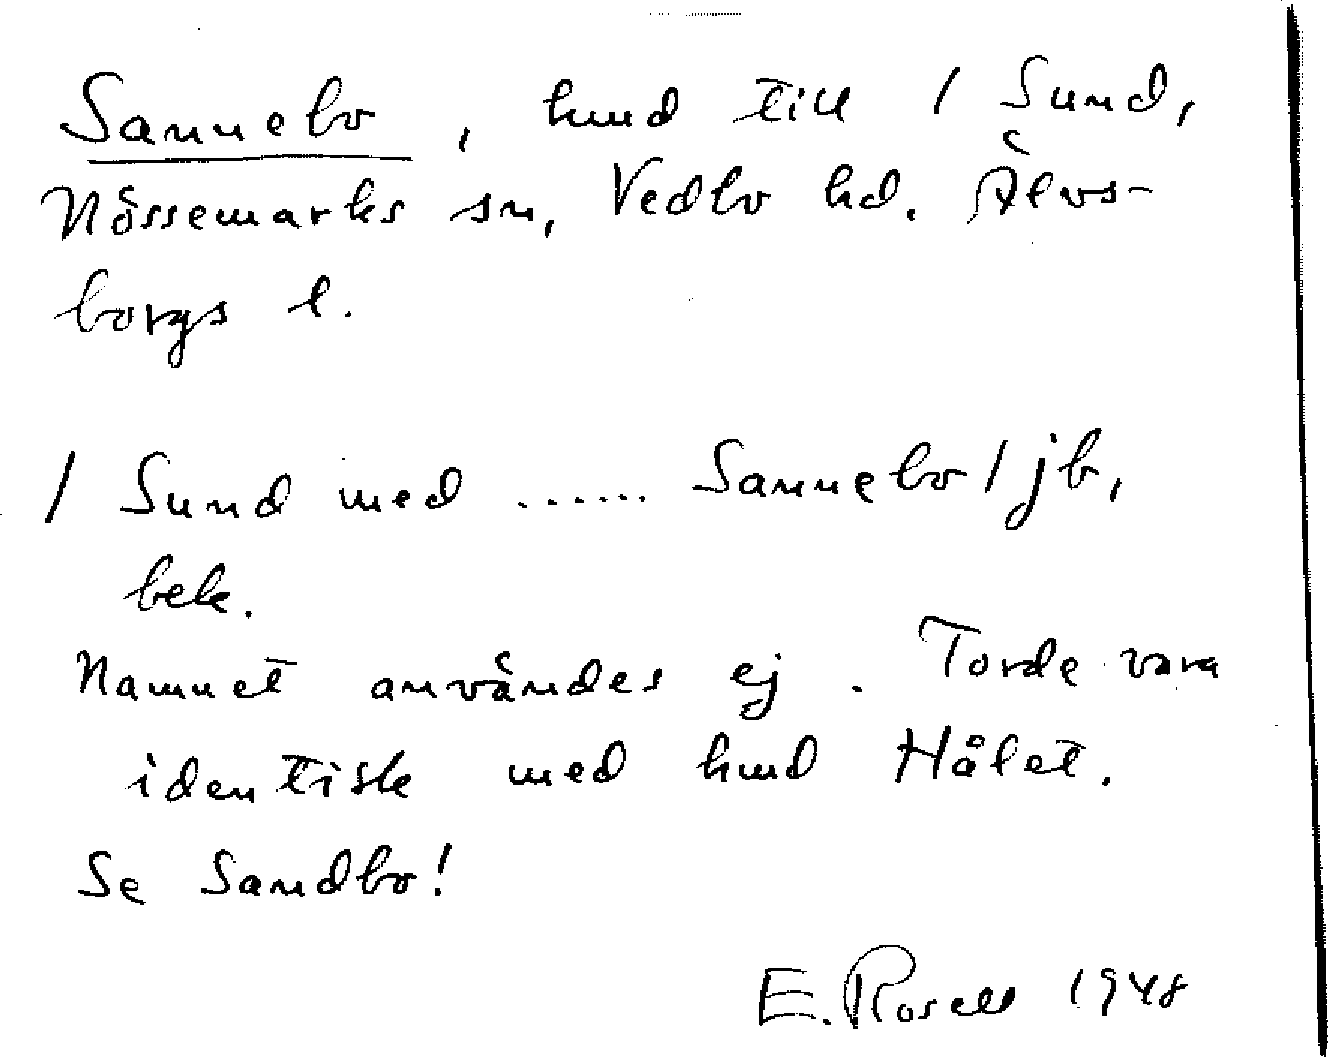 Sannebo, hmd till 1 Sund,
Nössemarks sn, Vedbo hd. Älvs-
borgs l.
1 Sund med ...... Sannebo / jb,
bek.
Namnet användes ej. Torde vara
identisk med hmd Hålet.
Se Sandbo!
E. Rosell 1948